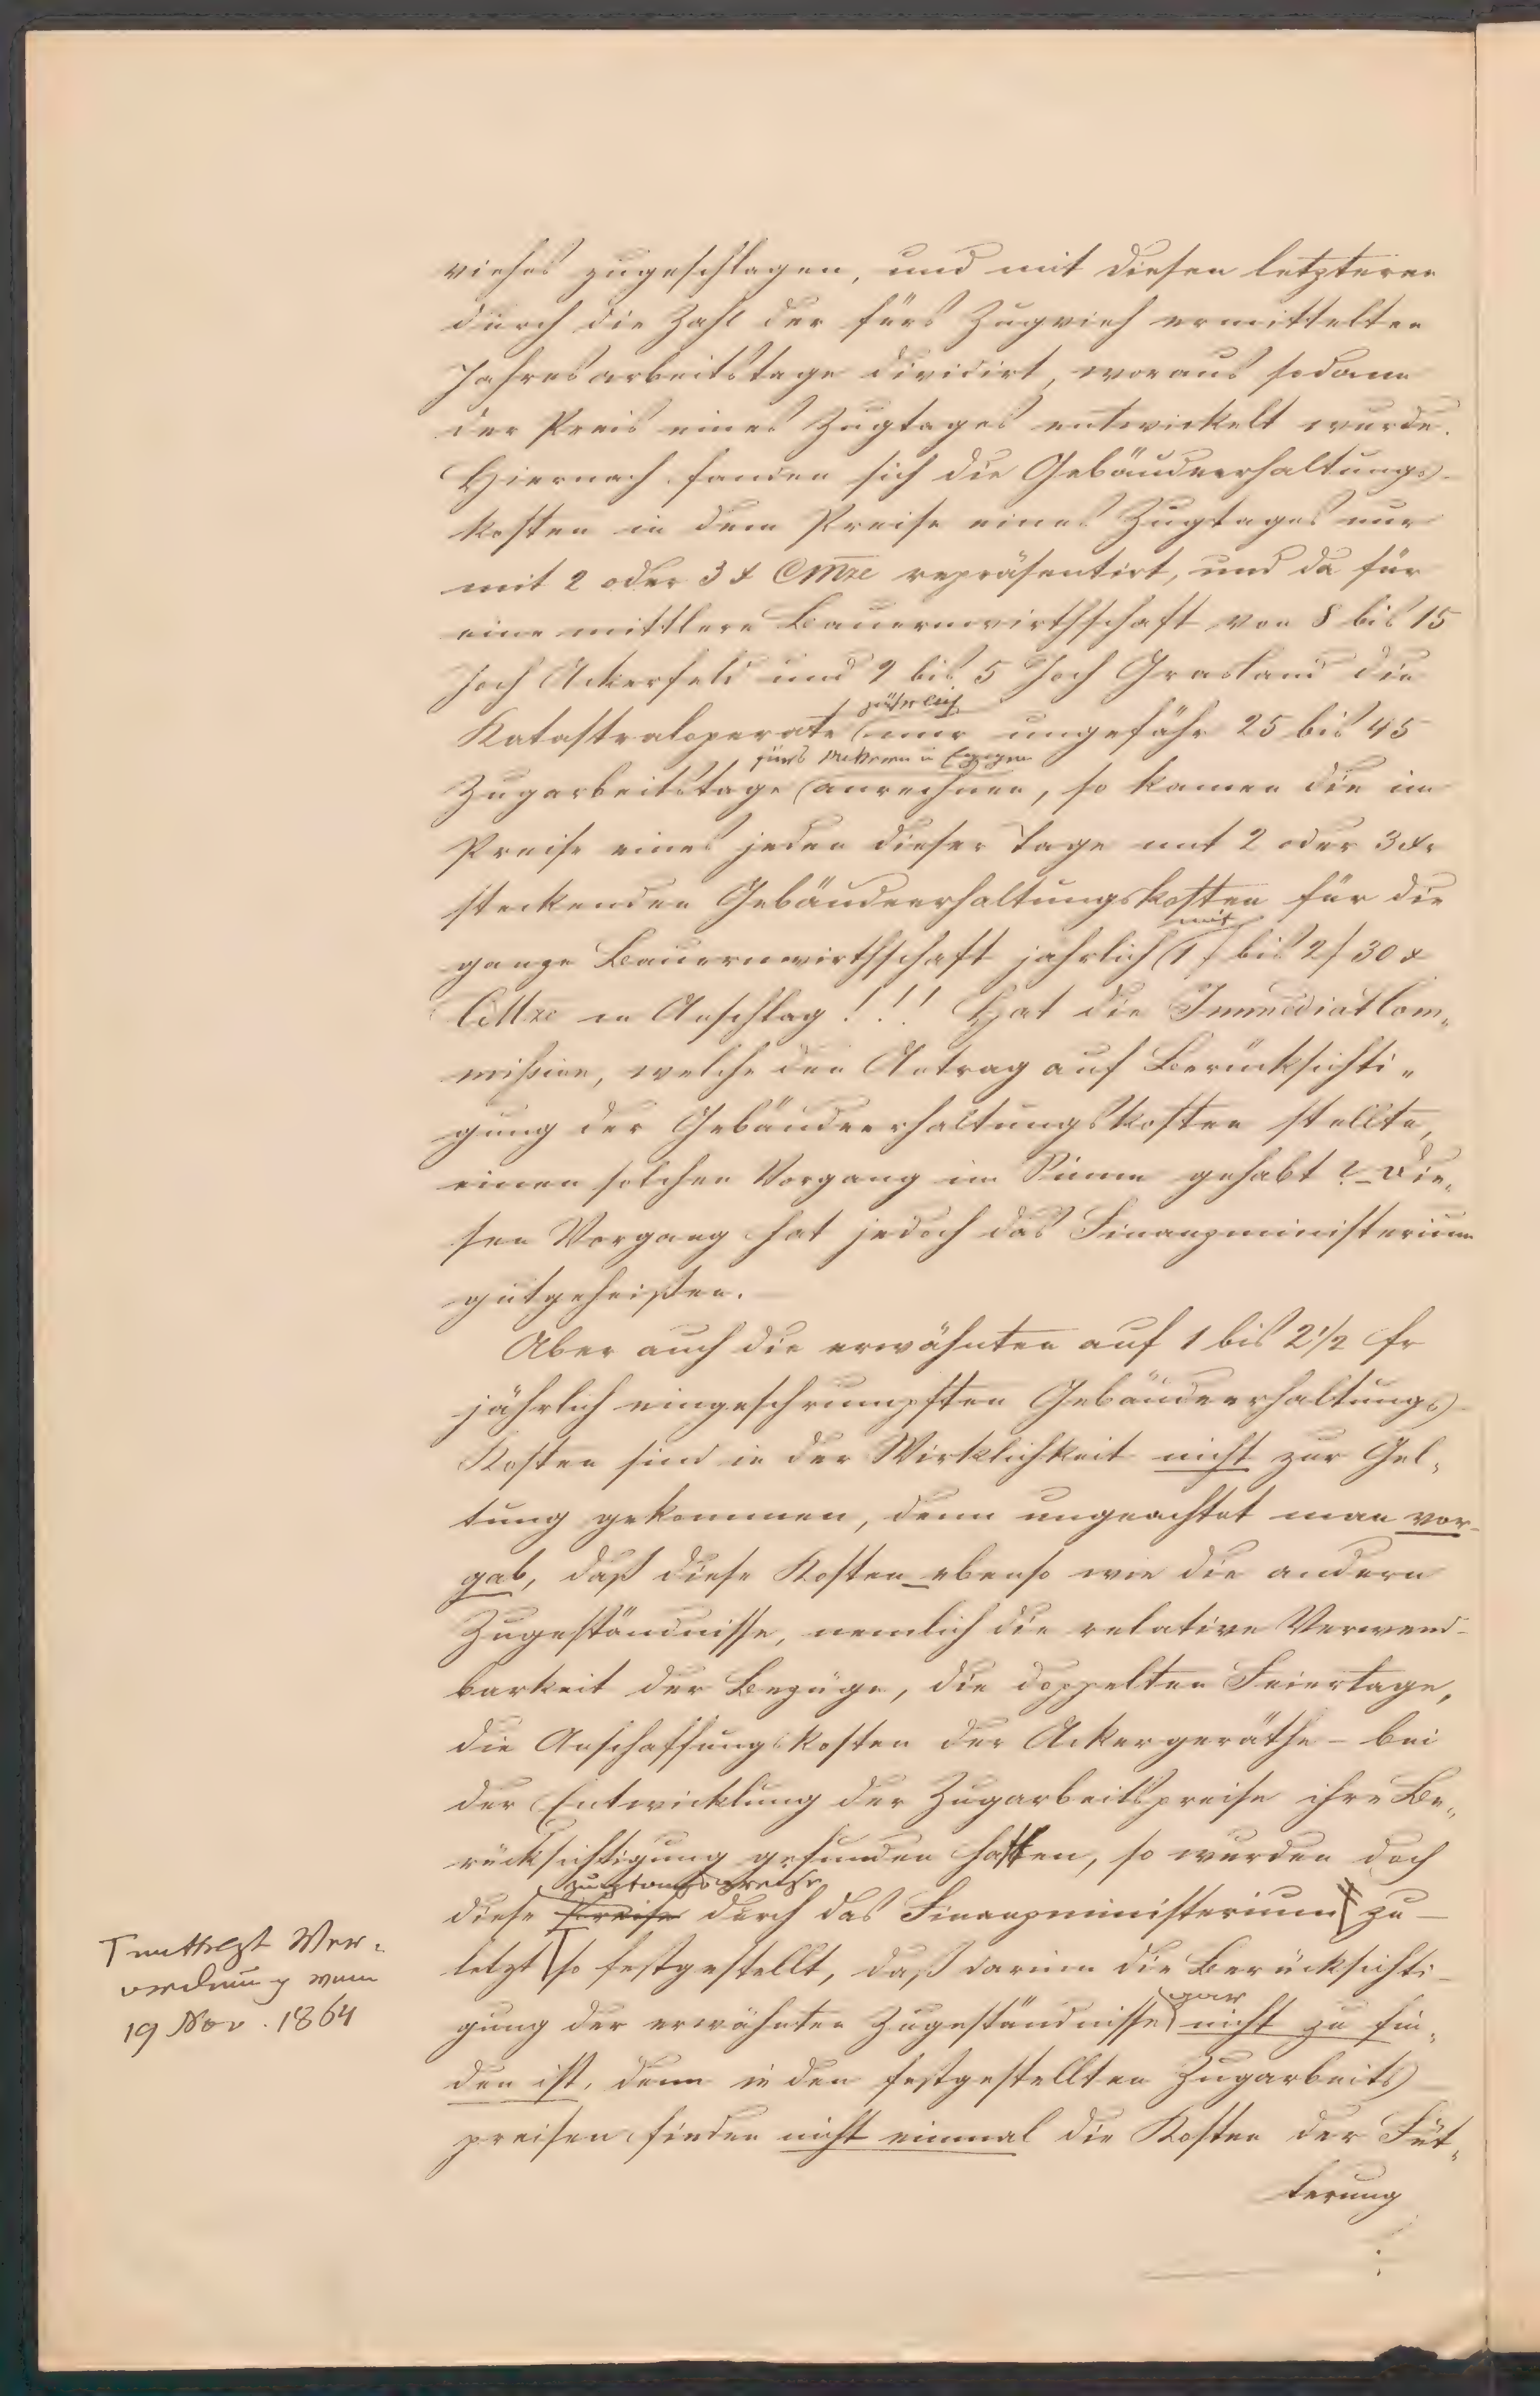 viehes zugeschlagen, und mit diesen letzteren
durch die Zahl der fürs Zugvieh ermittelten
Jahresarbeitstage dividirt, woraus sodann
der Preis eines Zugtages entwickelt wurde.
Hiernach fanden sich die Gebäudeerhaltungs-
kosten in dem Preise eines Zugtages nur
mit 2 oder 3 x CMze repräsentirt, und da für
eine mittlere Bauernwirthschaft von 8 bis 15
Joch Ackerfeld und 2 bis 5 Joch Grasland die
jährlich
Katastraloperate nur ungefähr 25 bis 45
fürs Ackern u Eggen
Zugarbeitstage anrechnen, so kamen die im
Preise eines jeden dieser Tage mit 2 oder 3 xr
steckenden Gebäudeerhaltungskosten für die
mit
ganze Bauernwirthschaft jährlich 1 f bis 2 f 30 x
CMze in Anschlag!!! Hat die Immediatcom„
mißion, welche den Antrag auf Berücksichti„
gung der Gebäudeerhaltungskosten stellte,
einen solchen Vorgang im Sinne gehabt? – Die„
sen Vorgang hat jedoch das Finanzministerium
gutgeheißen. –
Aber auch die erwähnten auf 1 bis 2 1/2 fr
jährlich eingeschrumpften Gebäudeerhaltungs-
Kosten sind in der Wirklichkeit nicht zur Gel„
tung gekommen, denn ungeachtet man vor-
gab, daß diese Kosten – ebenso wie die andern
Zugeständnisse, nemlich die relative Verwend-
barkeit der Bezüge, die doppelten Feiertage,
die Anschaffungskosten der Ackergeräthe – bei
der Entwicklung der Zugarbeitspreise ihre Be„
rücksichtigung gefunden hatten, so wurden doch
diese Preise durch das Finanzministerium zu-
letzt so festgestellt, daß darinn die Berücksichti-
gar
gung der erwähnten Zugeständnisse nicht zu fin„
den ist, denn in den festgestellten Zugarbeits-
preisen finden nicht einmal die Kosten der Füt„
terung
T mittelst Ver„
ordnung vom
19 Nov. 1864